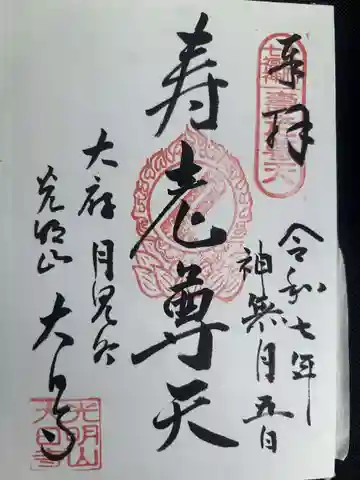 奉拝
令和七年
神無月五日
寿老尊天
大府 月見谷
光明山 大日寺
光明山
大日寺